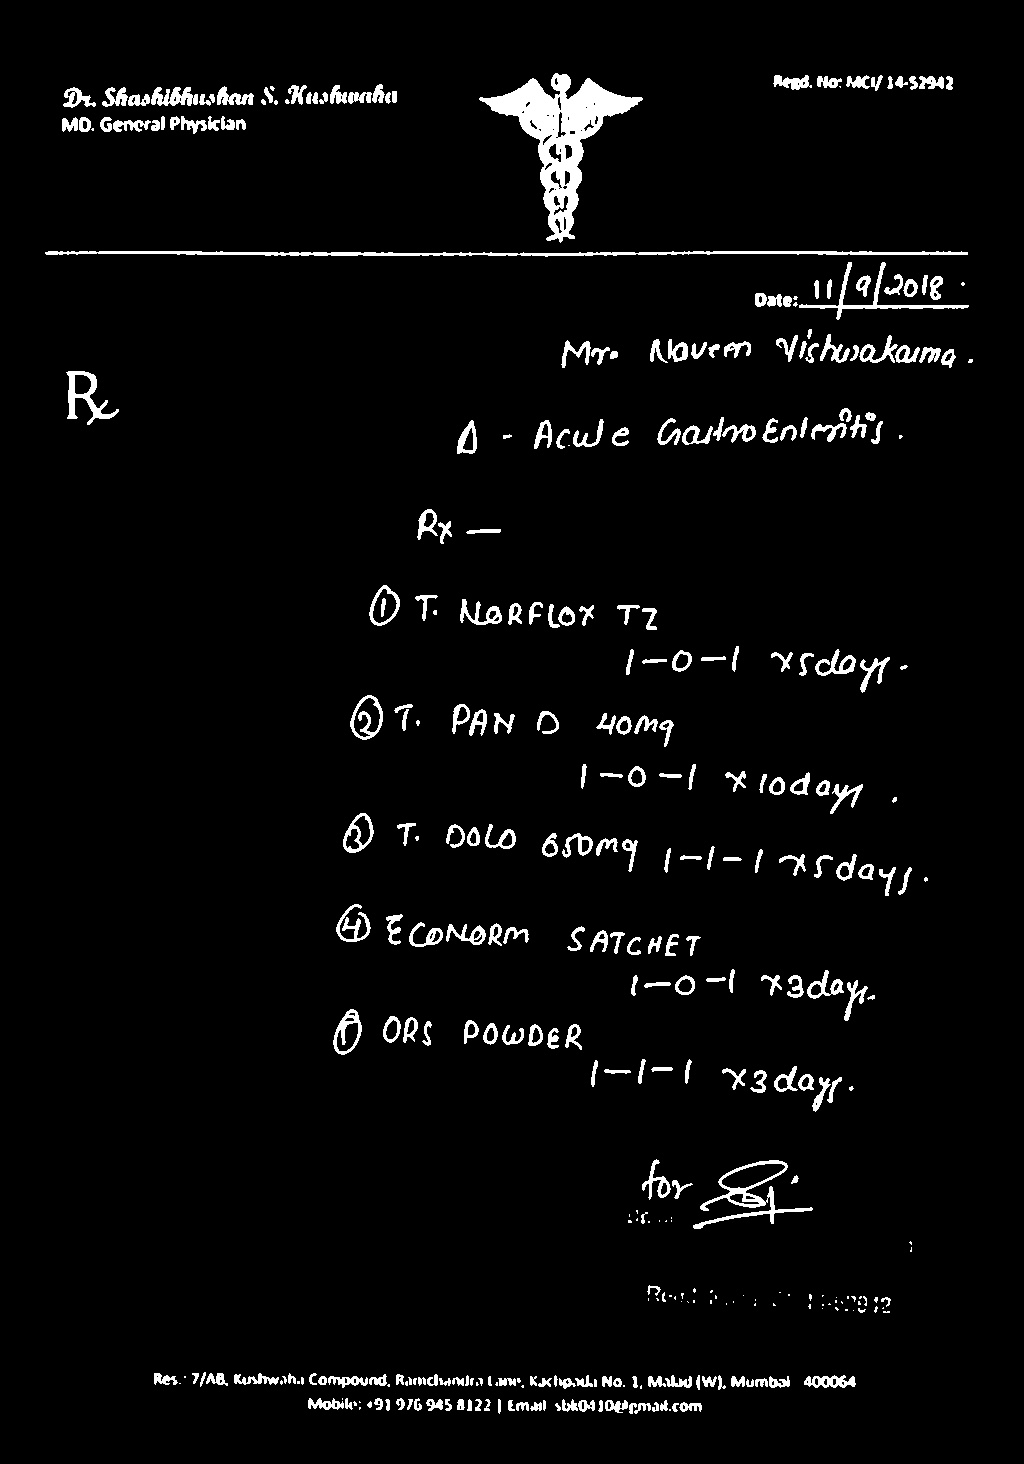 Dr. Shashibhushan S. Kushwaha
MD. General Physician
Regd. No: MCI/ 14-52942
Date: 11/9/2018
Mr. Naveen Vishwakarma.
Rx
Δ - Acute GastroEnteritis.
Rx —
① T. NORFLOX TZ
1-0-1 x5days.
② T. PAN D 40mg
1-0-1 x10days.
③ T. DOLO 650mg 1-1-1 x5days.
④ ECONORM SATCHET
1-0-1 x3days.
⑤ ORS POWDER
1-1-1 x3days.
for
Res.: 7/AB, Kushwaha Compound, Ramchandra Lane, Kachpada No. 1, Malad (W), Mumbai 400064
Mobile: +91 976 945 8122 | Email sbk0410@gmail.com